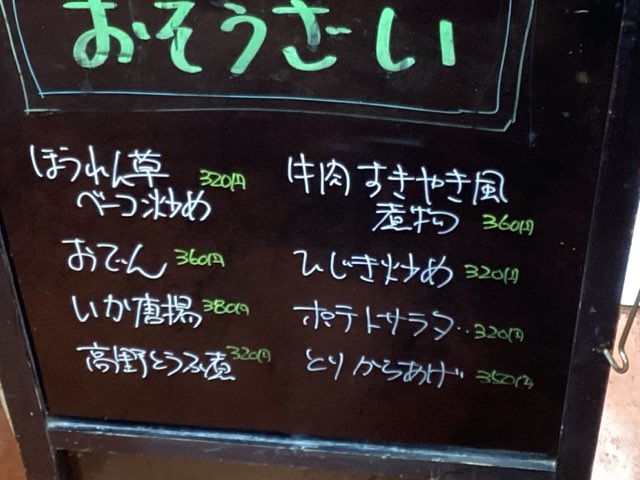 おそうざい
ほうれん草
ベーコン炒め 320円
おでん 360円
いか唐揚 380円
高野とうふ煮 320円
牛肉すきやき風
煮物 360円
ひじき炒め 320円
ポテトサラダ 320円
とりからあげ 350円